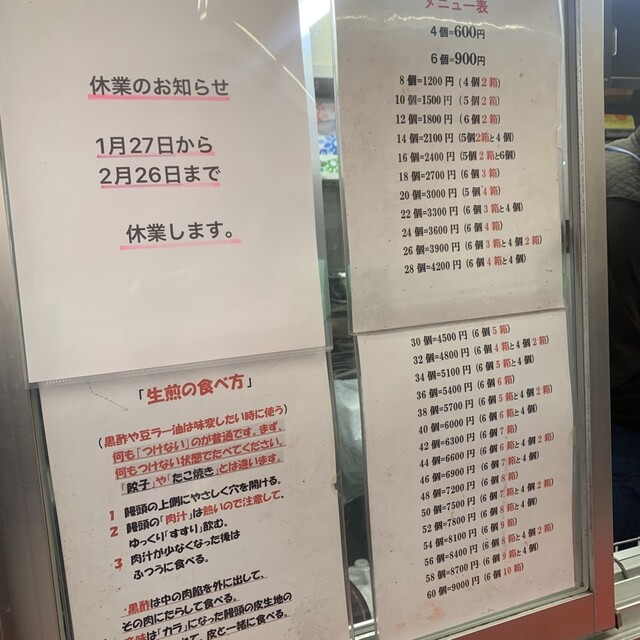 休業のお知らせ
1月27日から
2月26日まで
休業します。
メニュー表
4個=600円
6個=900円
8個=1200円 (4個2箱)
10個=1500円 (5個2箱)
12個=1800円 (6個2箱)
14個=2100円 (5個2箱と4個)
16個=2400円 (5個2箱と6個)
18個=2700円 (6個3箱)
20個=3000円 (5個4箱)
22個=3300円 (6個3箱と4個)
24個=3600円 (6個4箱)
26個=3900円 (6個3箱と4個2箱)
28個=4200円 (6個4箱と4個)
30個=4500円 (6個5箱)
32個=4800円 (6個4箱と4個2箱)
34個=5100円 (6個5箱と4個)
36個=5400円 (6個6箱)
38個=5700円 (6個5箱と4個2箱)
40個=6000円 (6個6箱と4個)
42個=6300円 (6個7箱)
44個=6600円 (6個6箱と4個2箱)
46個=6900円 (6個7箱と4個)
48個=7200円 (6個8箱)
50個=7500円 (6個7箱と4個2箱)
52個=7800円 (6個8箱と4個)
54個=8100円 (6個9箱)
56個=8400円 (6個8箱と4個2箱)
58個=8700円 (6個9箱と4個)
60個=9000円 (6個10箱)
「生煎の食べ方」
(黒酢や豆ラー油は味変したい時に使う)
何も「つけない」のが普通です。まず、
何もつけない状態でたべてください。
「餃子」や「たこ焼き」とは違います。
1 饅頭の上側にやさしく穴を開ける。
2 饅頭の「肉汁」は熱いので注意して、
ゆっくり「すすり」飲む。
3 肉汁が少なくなった後は
ふつうに食べる。
黒酢は中の肉餡を外に出して、
その肉にたらして食べる。
は「カラ」になった饅頭の皮生地の
て、皮と一緒に食べる。